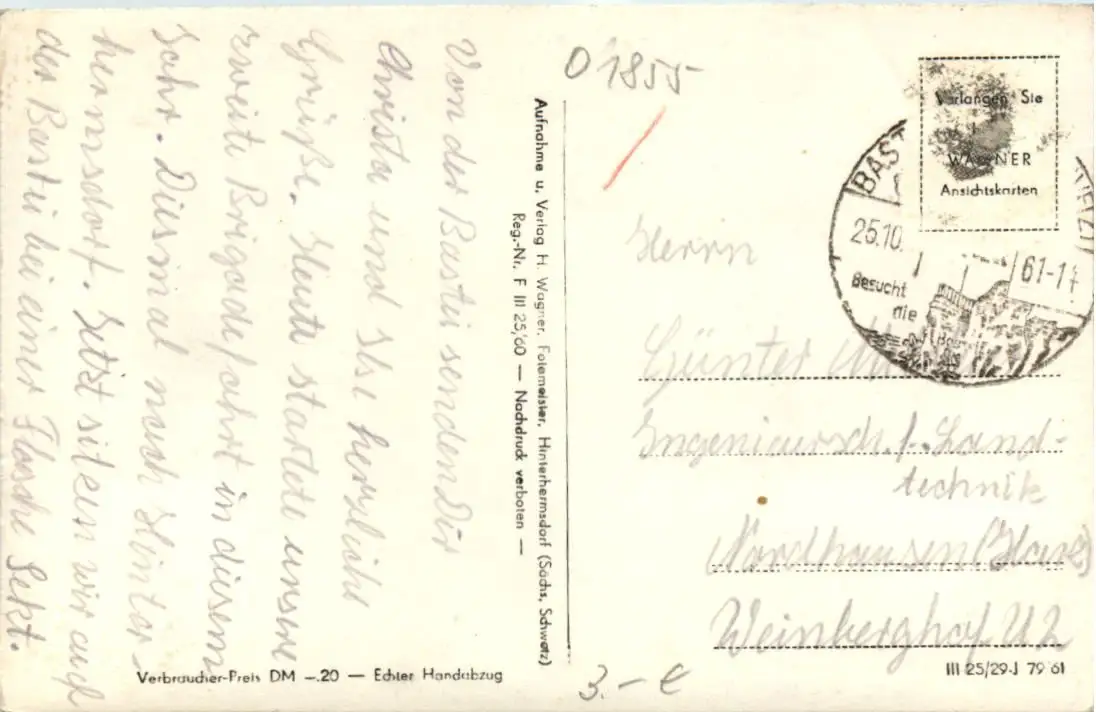 Von der Bastei senden Dir
Christa und Ilse herzliche
Grüße. Heute startete unsere
zweite Brigadefahrt in diesem
Jahr. Diesmal nach Hinter-
hermsdorf. Jetzt sitzen wir auf
der Bastei bei einer Flasche Sekt.
Aufnahme u. Verlag H. Wagner, Fotomeister, Hinterhermsdorf (Sächs. Schweiz)
Reg.-Nr. F III 25/60 — Nachdruck verboten —
Verbraucher-Preis DM –.20 — Echter Handabzug
01855
Verlangen Sie
WAGNER
Ansichtskarten
BAST
WEIZ)
25.10.
61-1
Besucht
die
Herrn
Günter
Ingenieursch. f. Land-
technik
Nordhausen (Harz)
Weinberghof U2
3.– €
III 25/29-J 79 61